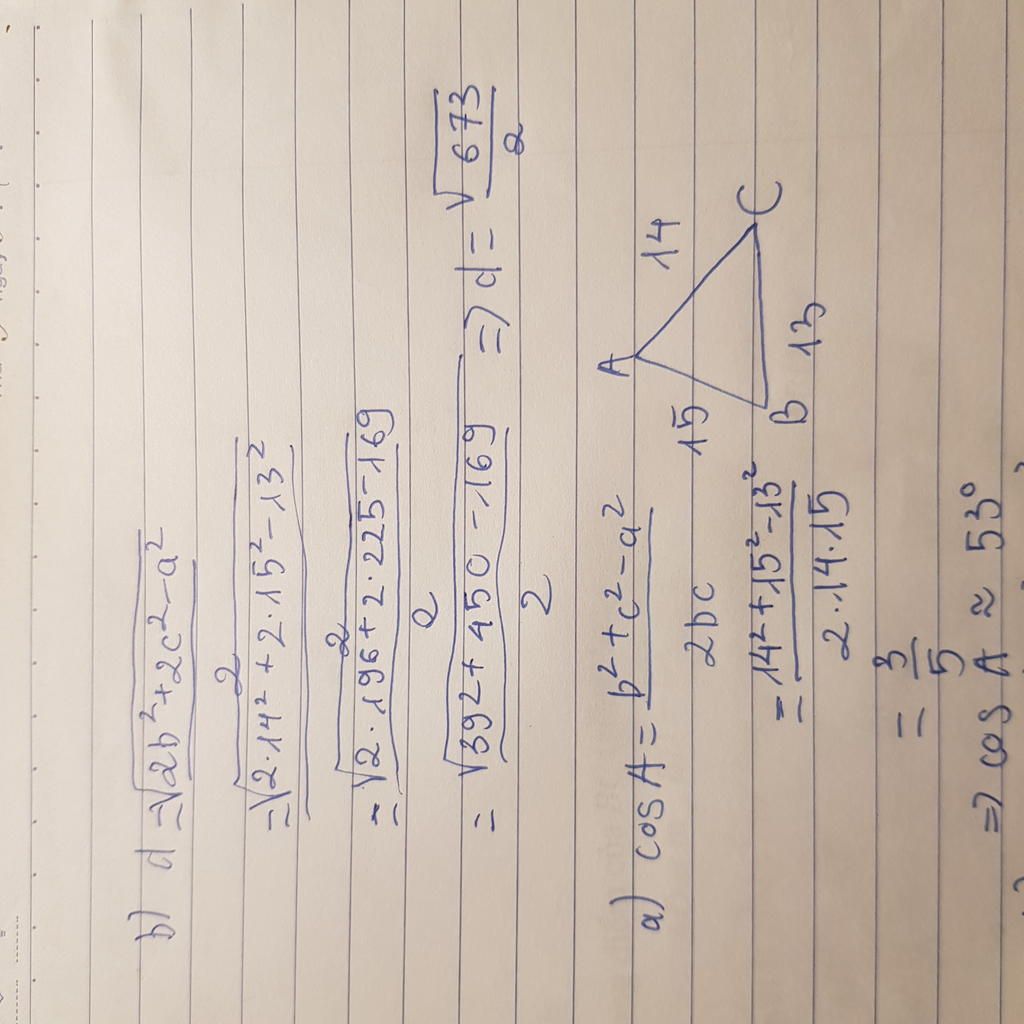 b) d = √2b²+2c²-a²
2
= √2·14²+2·15²-13²
2
= √2·196+2·225-169
2
= √392+450-169 => d = √673
2 2
a) cos A = b²+c²-a²
2bc
= 14²+15²-13²
2·14·15
= 3
5
=> cos A ≈ 53°
A
15
14
B
13
C